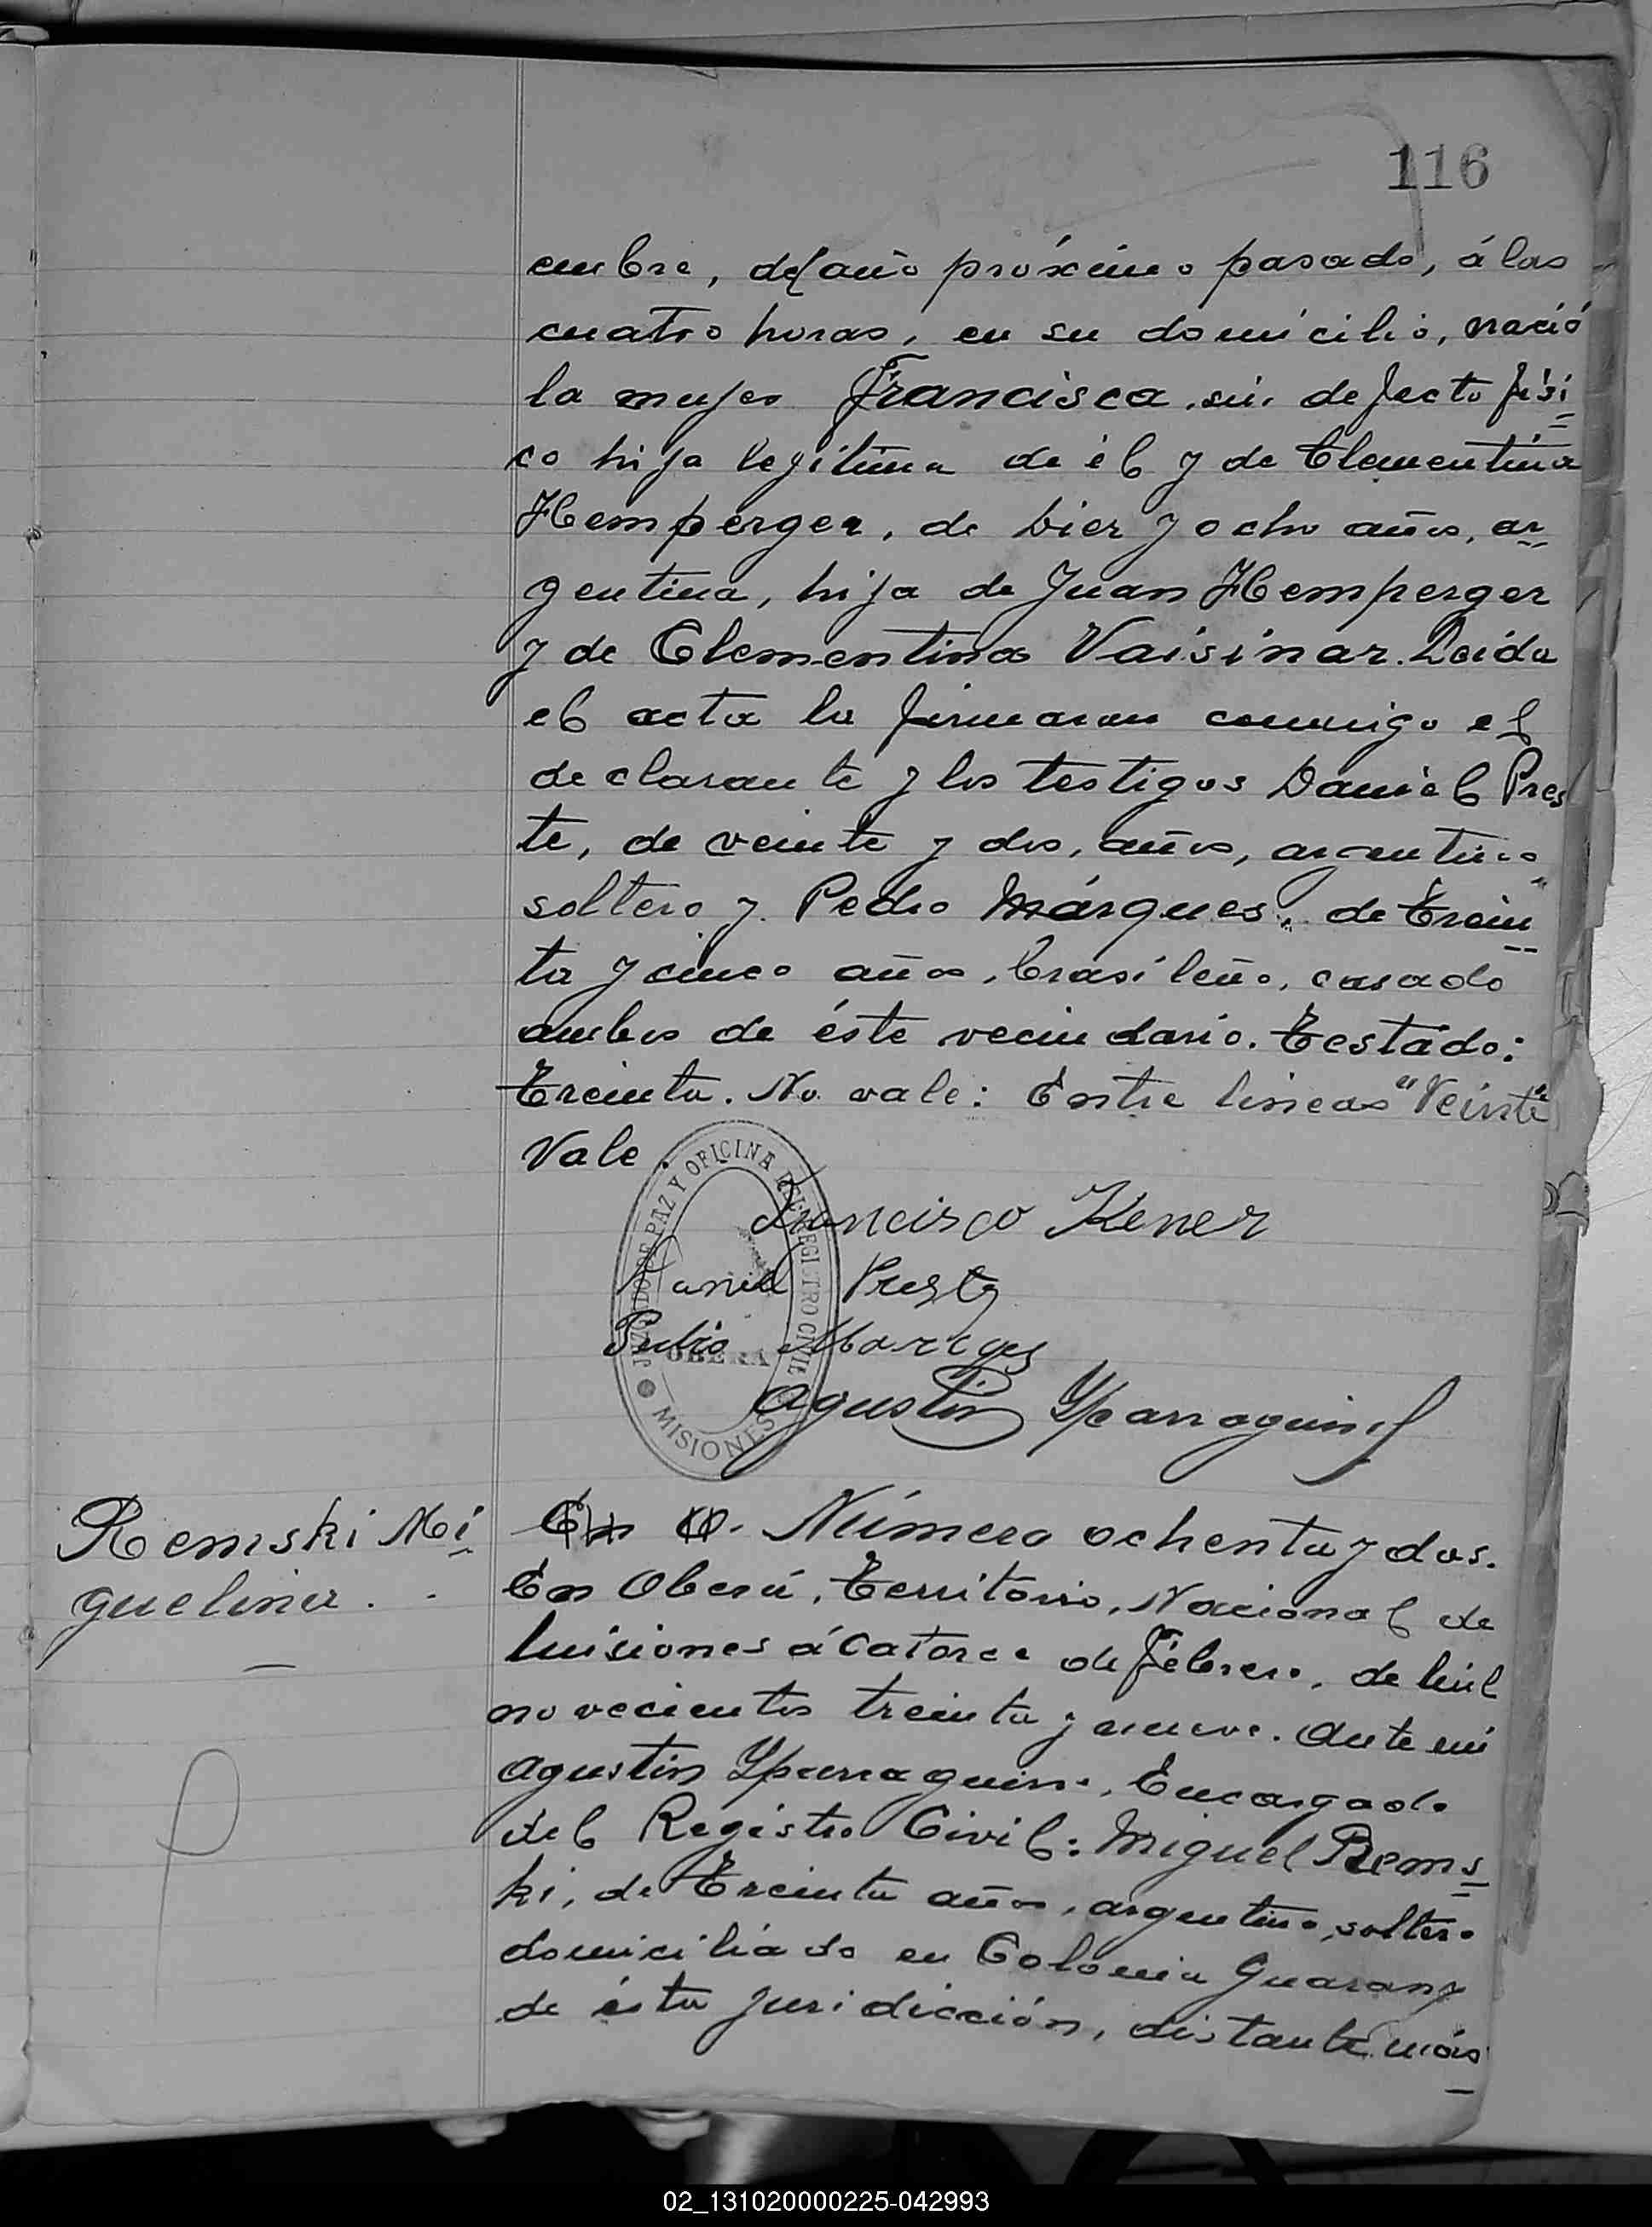 116
embre, del año próximo pasado, á las
cuatro horas, en su domicilio, nació
la mujer Francisca, sin defecto físi
co hija legítima de él y de Clementina
Hemperger, de diez y ocho años, ar
gentina, hija de Juan Hemperger
y de Clementina Vaisinar. Leida
el acta la firmaron conmigo el
declarante y los testigos Daniel Pres
te, de veinte y dos, años, argentino
soltero y Pedro Márques, de trein
ta y cinco años, brasileño, casado
ambos de éste vecindario. Testado:
Treinta. No vale: Entre lineas "Veinte"
Vale.
JUZGADO DE PAZ Y OFICINA DEL REGISTRO CIVIL
OBERA
MISIONES
Francisco Kener
Daniel Preste
Pedro Marques
Agustin Yparraguirre
Remski Mi
guelina.
En O. Número ochenta y dos.
En Oberá, Territorio, Nacional de
Misiones á catorce de Febrero, de mil
novecientos treinta y nueve. Ante mi
Agustin Yparraguirre, Encargado
del Registro Civil: Miguel Rems
ki, de treinta años, argentino, soltero
domiciliado en Colonia Guarany
de ésta juridicción, distante más
02_131020000225-042993